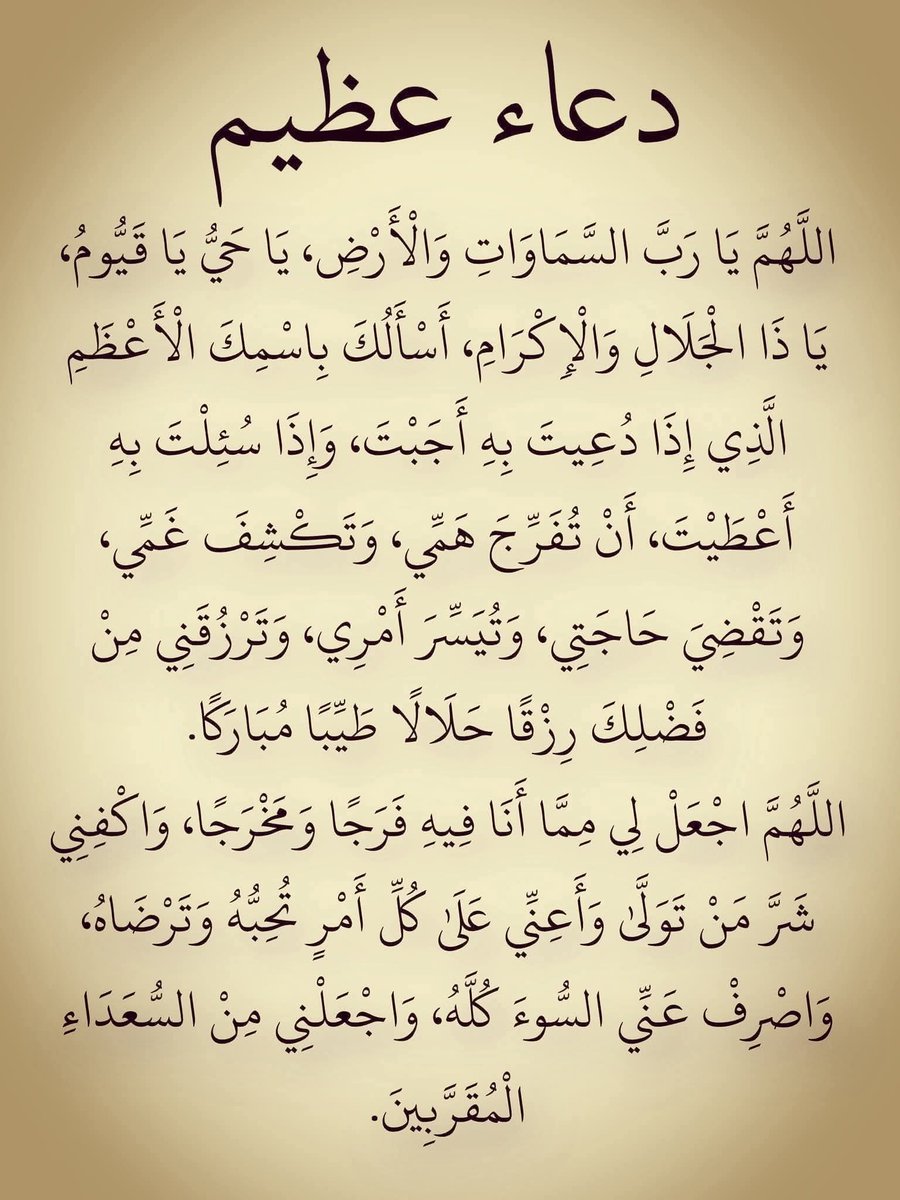 دعاء عظيم
اللَّهُمَّ يَا رَبَّ السَّمَاوَاتِ وَالْأَرْضِ، يَا حَيُّ يَا قَيُّومُ،
يَا ذَا الْجَلَالِ وَالْإِكْرَامِ، أَسْأَلُكَ بِاسْمِكَ الْأَعْظَمِ
الَّذِي إِذَا دُعِيتَ بِهِ أَجَبْتَ، وَإِذَا سُئِلْتَ بِهِ
أَعْطَيْتَ، أَنْ تُفَرِّجَ هَمِّي، وَتَكْشِفَ غَمِّي،
وَتَقْضِيَ حَاجَتِي، وَتُيَسِّرَ أَمْرِي، وَتَرْزُقَنِي مِنْ
فَضْلِكَ رِزْقًا حَلَالًا طَيِّبًا مُبَارَكًا.
اللَّهُمَّ اجْعَلْ لِي مِمَّا أَنَا فِيهِ فَرَجًا وَمَخْرَجًا، وَاكْفِنِي
شَرَّ مَنْ تَوَلَّىٰ وَأَعِنِّي عَلَىٰ كُلِّ أَمْرٍ تُحِبُّهُ وَتَرْضَاهُ،
وَاصْرِفْ عَنِّي السُّوءَ كُلَّهُ، وَاجْعَلْنِي مِنْ السُّعَدَاءِ
الْمُقَرَّبِينَ.